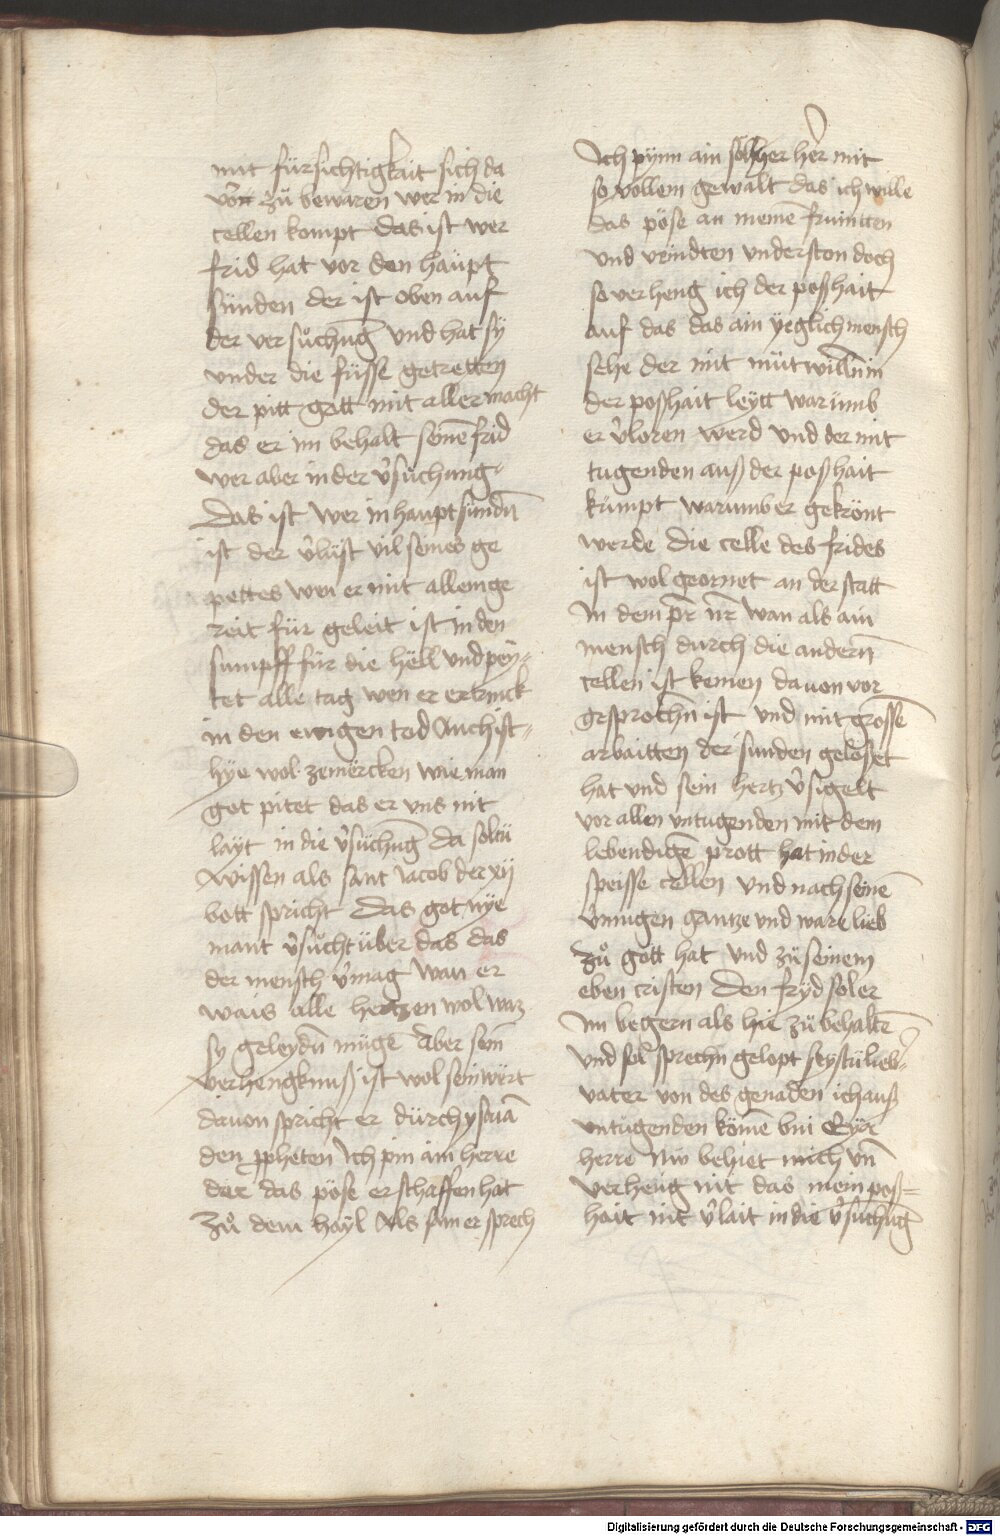 mit fürsichtigkait sich da
von zů bewaren wer in die
cellen kompt das ist wer
frid hat vor den haüpt
sünden der ist oben auf
der versůchūg und hat sy
vnder die füsse getretten
der pitt gott mit aller macht
das er im behalt seinē frid
wer aber in der v̾süchung
Das ist wer in hauptsündn̄
ist der v̾lüst vil seines ge
pettes wen er mit allem ge
reit für geleit ist in den
sumpff für die hëll und pey-
tet alle tag wen er ertrinck
in den ewigen tod Auch ist-
hÿe wol zemërcken wie man
got pitet das er vns nit
layt in die v̾süchūg da soltu
wissen als sant Jacob der xij
bott spricht das got nÿe
mant v̾sůcht über das das
der mensch v̾mag wan er
wais alle hertzen wol waz
sy geleydn̄ mügē Aber sein
verhengknuß ist wol sein wërt
dauon spricht er dürch ysaiā
den ppheten Ich pin ain herre
der das pöse erschaffen hat
zů dem hayl Als sam er sprech
Ich pynn ain sölher her mit
so vollem gewalt das ich wille
das pöse an meinē frumtten
und vrindten understen doch
so verheng ich der posshait
auf das das ain yeglich mensch
sehe der mit mütwilln̄ in
der posshait leytt warümb
er v̾loren werd und der mit
tugenden auß der posshait
kümpt warumb er gekrönt
werde die celle des frides
ist wol geornet an der statt
In dem pr̄ nr̄ wan als ain
mensch dürch die andern̄
cellen ist kemen dauon vor
gesprochn̄ ist und mit grossē
arbaitten der sunden geloset
hat und sein hertz v̾sigelt
vor allen untugenden mit dem
lebendigē prott hat in der
speisse cellen und nach seinē
v̾mugen gantze und ware lieb
zů gott hat und zü seinem
eben cristen den fryd sol er
Im begern als hie zü behaltē
und sol sprechn̄ gelopt seystu lieb̾
vater von des genaden ich auß
untugenden kömē bin Eyā
herre nw behüet mich vn̄
verheng nit das mein poß-
hait nit v̾lait in die v̾süchūg
Digitalisierung gefördert durch die Deutsche Forschungsgemeinschaft - DFG